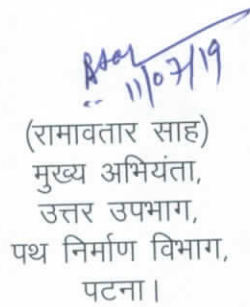 11/07/19
(रामावतार साह)
मुख्य अभियंता,
उत्तर उपभाग,
पथ निर्माण विभाग,
पटना।